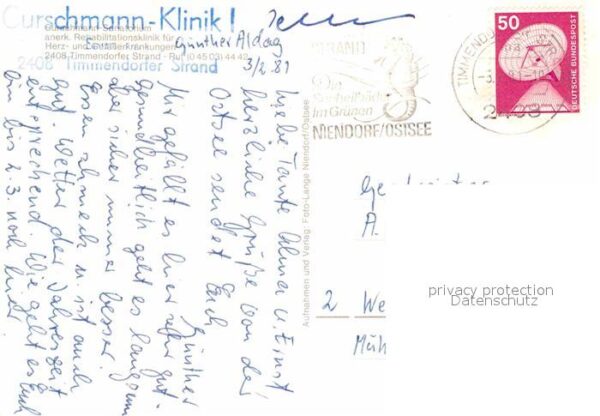 Curschmann-Klinik!
Curschmann Sanatorium
anerk. Rehabilitationsklinik für
Herz- und Gefäßerkrankungen
2408 Timmendorfer Strand · Ruf (0 45 03) 44 42
2408 Timmendorfer Strand
Günther Aldag
3/2.81
Liebe Tante Alma u. Ernst
herzliche Grüße von der
Ostsee sendet Euch
Günther
Mir gefällt es hier sehr gut.
gesundheitlich geht es langsam
aber sicher immer besser.
Essen schmeckt u. ist auch
gut. Wetter der Jahreszeit
entsprechend. Wie geht es Euch
bin bis 2.3. noch hier.
Aufnahmen und Verlag: Foto-Lange Niendorf/Ostsee
STRAND
Die
Seeheilbäder
Im Grünen
NIENDORF/OSTSEE
TIMMENDORFER
2408
50
DEUTSCHE BUNDESPOST
A.
2 We
Müh
privacy protection
Datenschutz